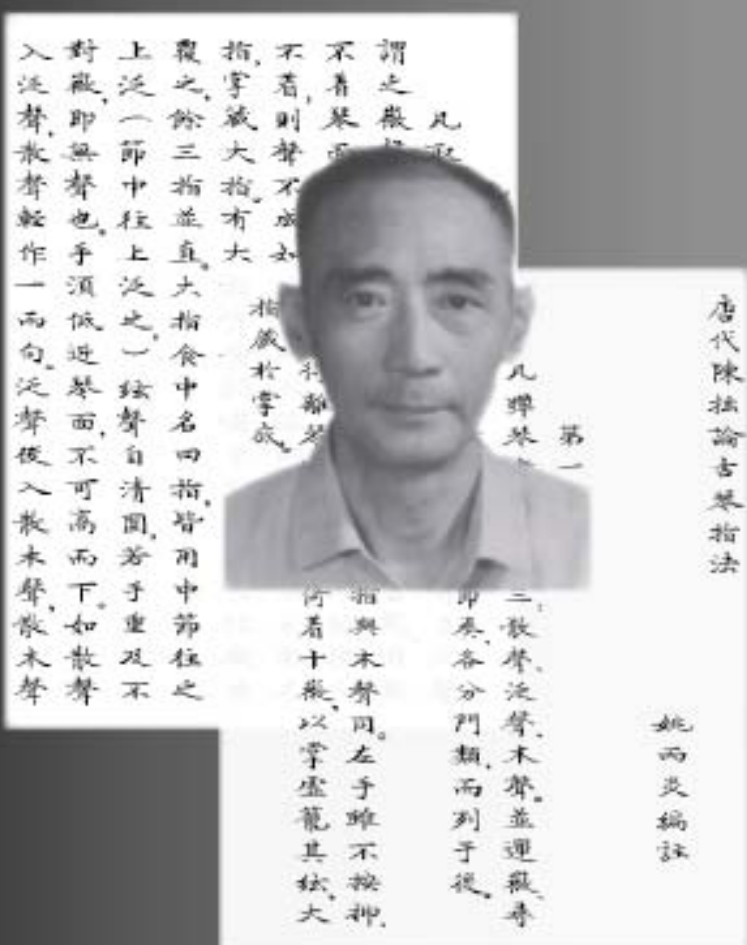 唐代陳拙論古琴指法
姚丙炎編註
第一
凡彈琴
三,散聲、泛聲、木聲。並運徽尋
節奏,各分門類,而列于後。
指與木聲同。左手雖不按抑,
倚着十徽,以掌虛籠其絃,大
指藏於掌底。
凡取
謂之徽
不着琴而
不着,則聲不成。如
指,掌藏大指。有大
覆之,餘三指並直。大指食中名四指,皆用中節往之
上泛(節中往上泛之。)絃聲自清圓,若手重及不
對徽,即無聲也。手須低近琴面,不可高而下。如散聲
入泛聲,散聲輕作一兩句。泛聲後入散木聲,散木聲